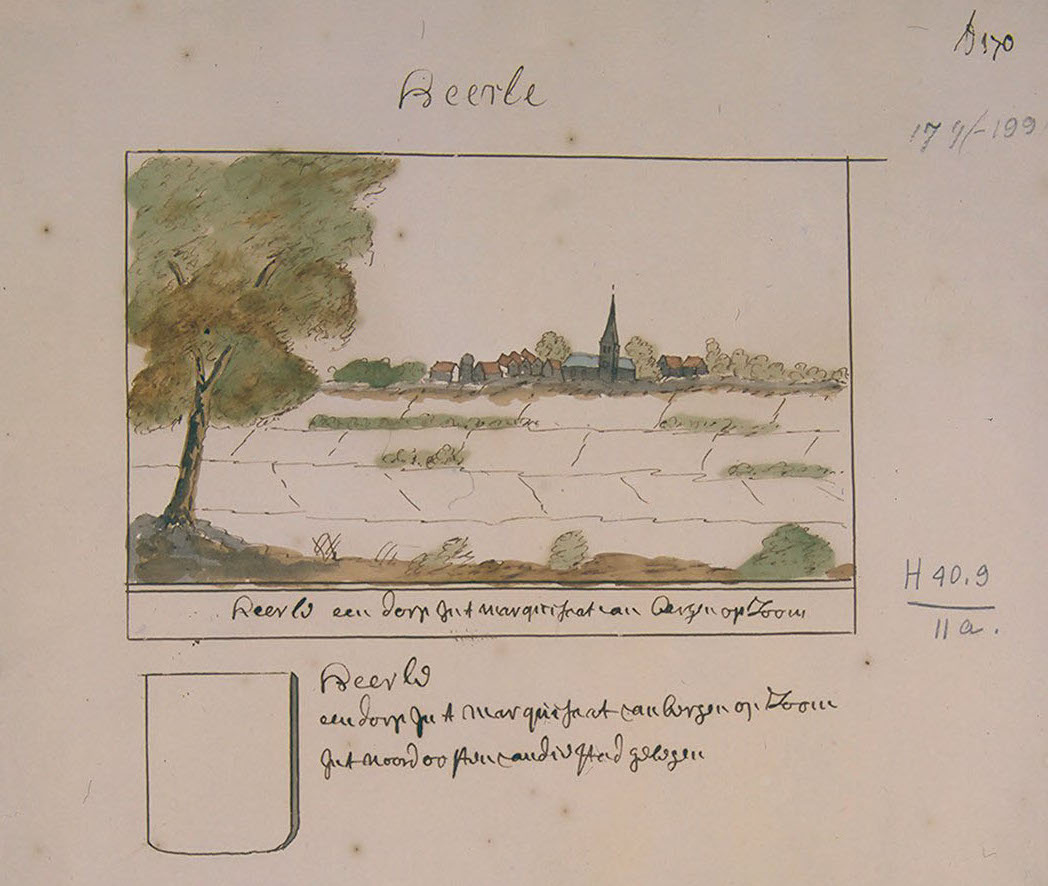 D 170
Heerle
179/-199
Heerle een dorp Jn t marquisaat van Bergen op Zoom
H 40.9
11a.
Heerle
een dorp Jn t marquisaat van bergen op Zoom
Jn t noord oosten van die stad gelegen